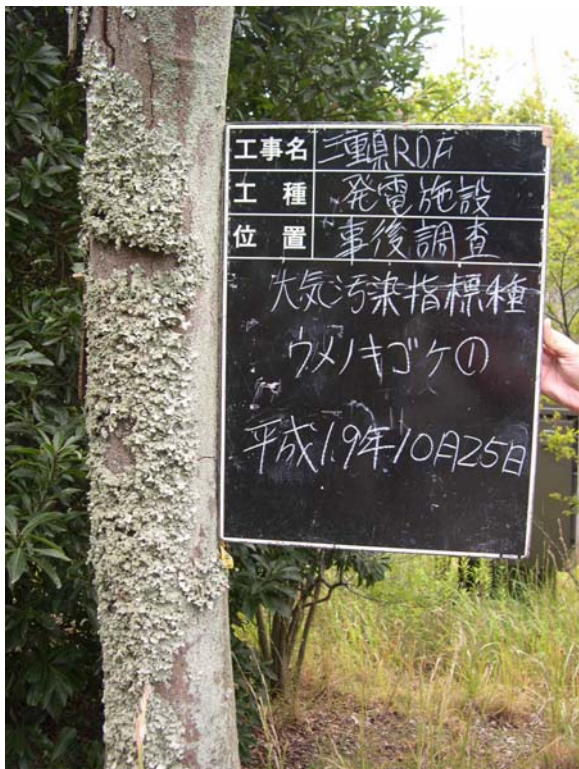 工事名 三重県RDF
工種 発電施設
位置 事後調査
大気汚染指標種
ウメノキゴケ①
平成19年10月25日